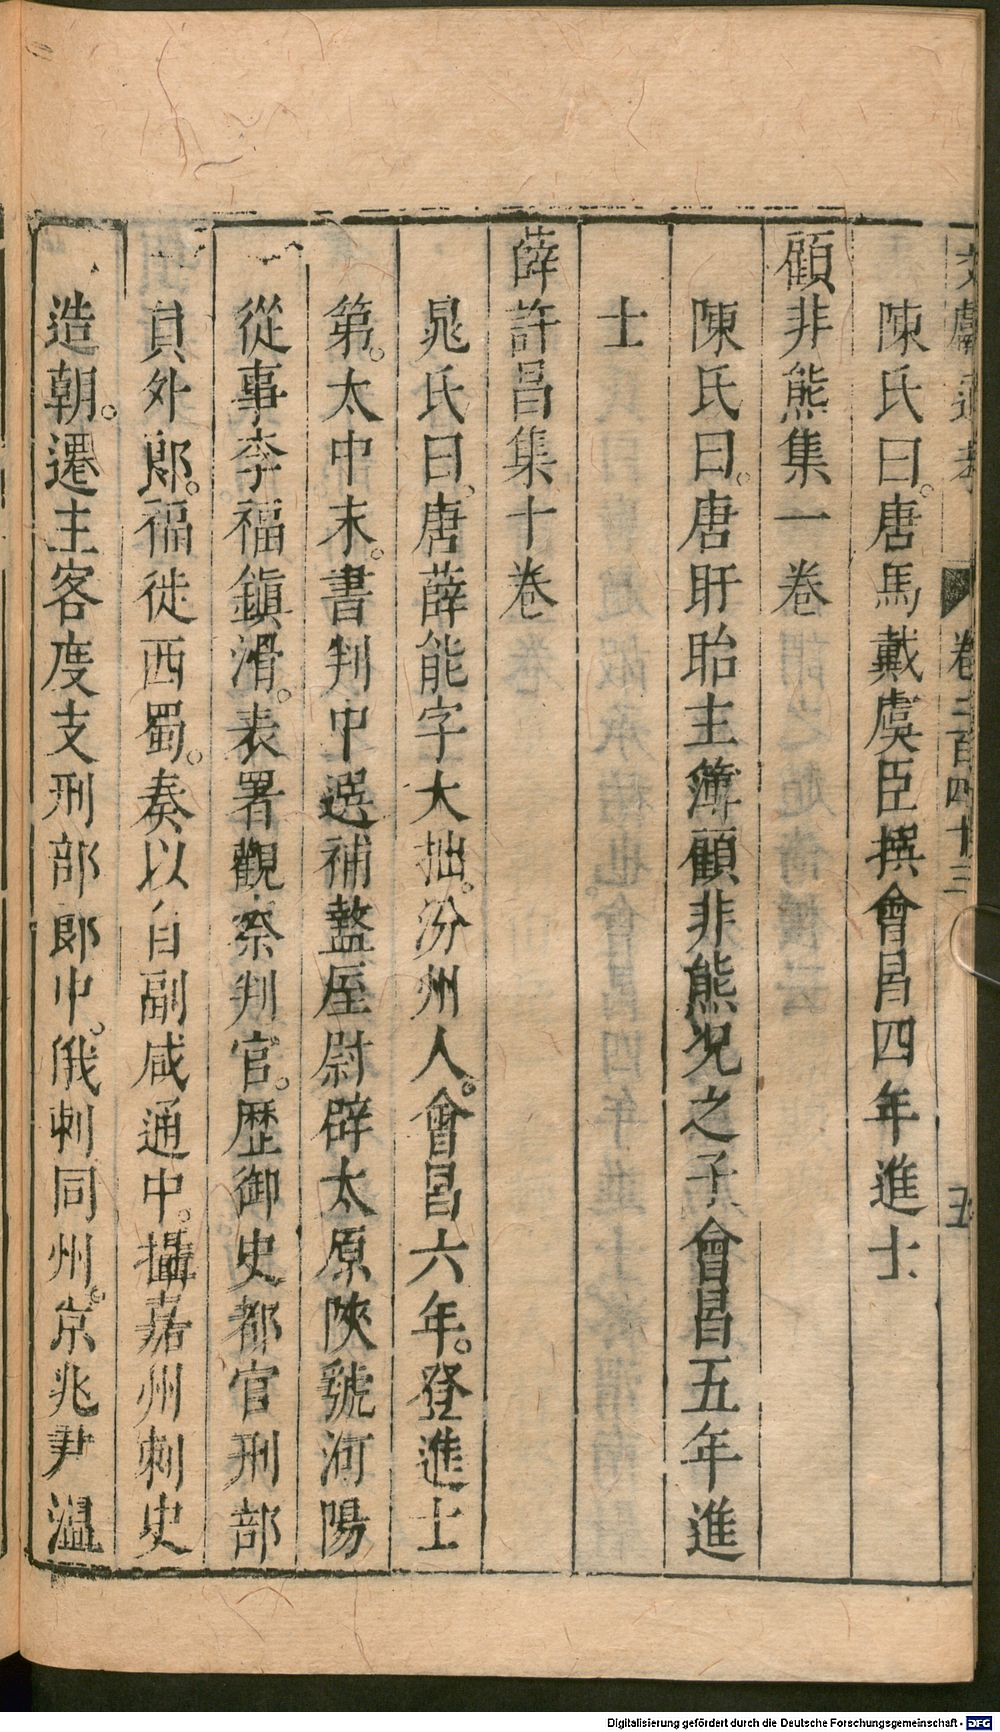 文獻通考 卷二百四十三 五
陳氏曰。唐馬戴虞臣撰會昌四年進士
顧非熊集一卷
陳氏曰。唐盱眙主簿顧非熊况之子會昌五年進
士
薛許昌集十卷
晁氏曰。唐薛能字大拙。汾州人。會昌六年。登進士
第。太中末。書判中選補盩厔尉辟太原陝虢河陽
從事李福鎭滑。表署觀察判官。歷御史都官刑部
員外郎。福徙西蜀。奏以自副咸通中。攝嘉州刺史
造朝。遷主客度支刑部郎中。俄刺同州。京兆尹溫
Digitalisierung gefördert durch die Deutsche Forschungsgemeinschaft - DFG